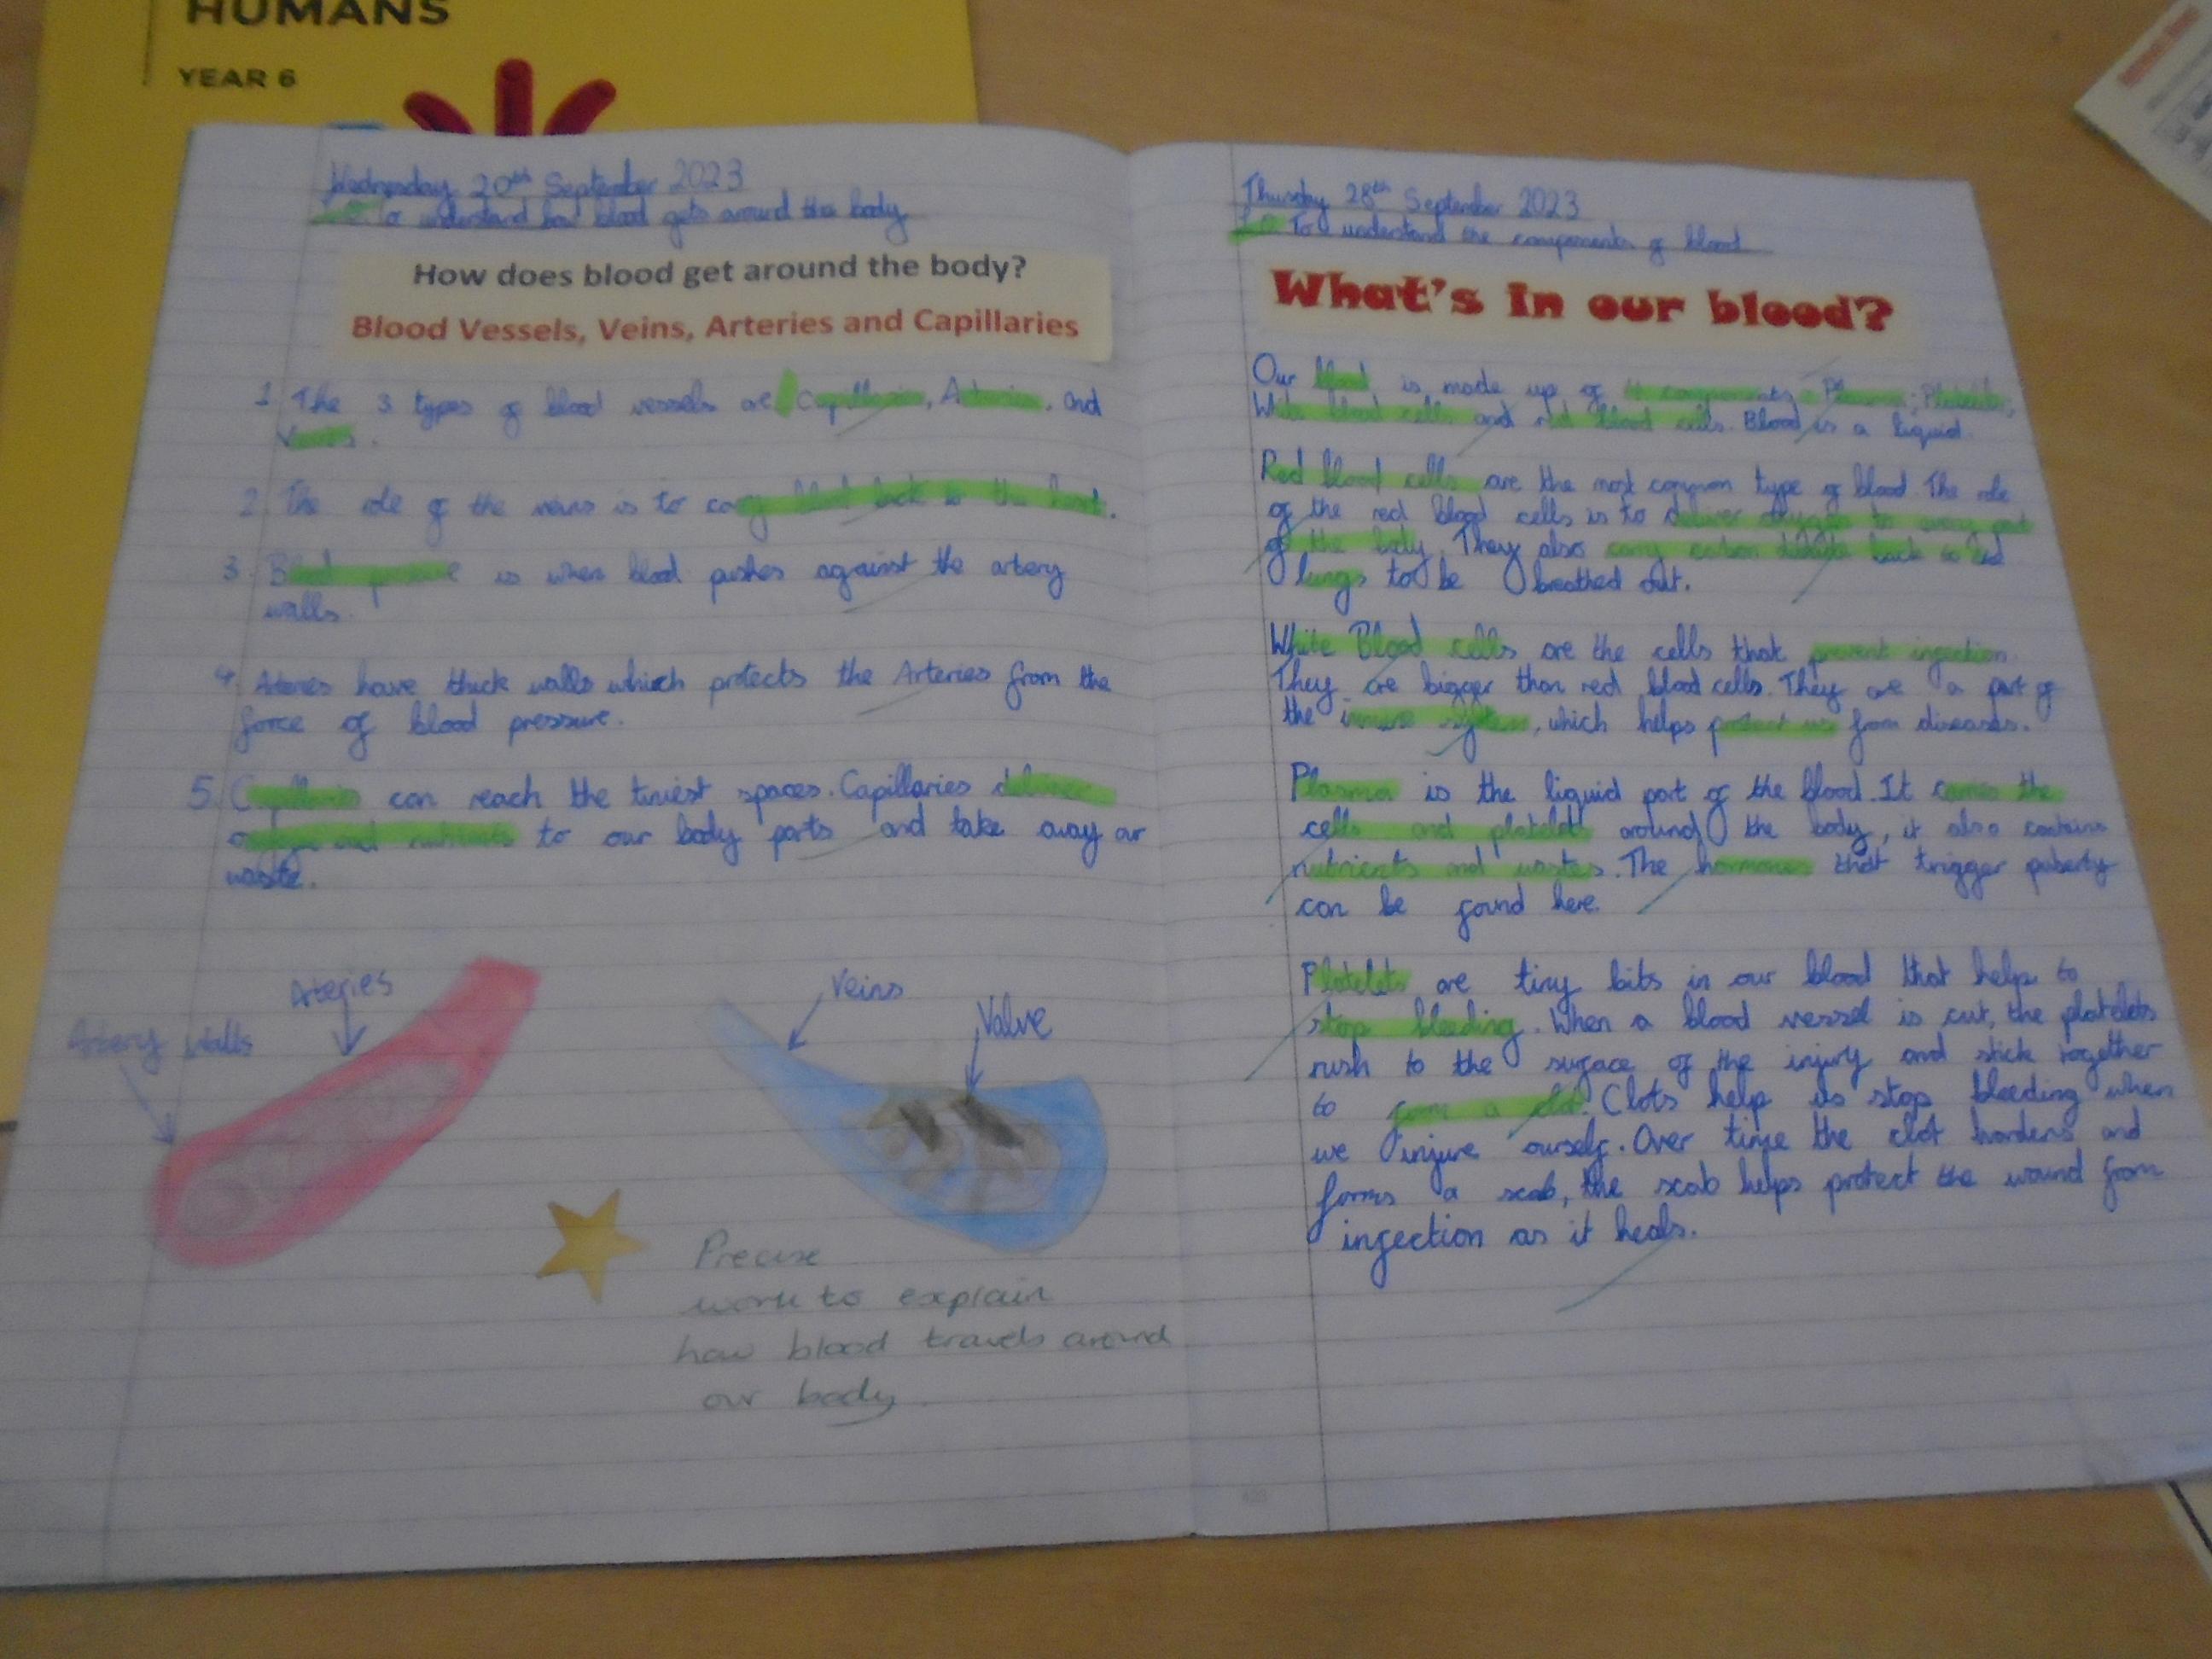 HUMANS
YEAR 6
Wednesday 20th September 2023
To understand how blood gets around the body
How does blood get around the body?
Blood Vessels, Veins, Arteries and Capillaries
1. The 3 types of blood vessels are Capillaries, Arteries, and
Veins.
2. The role of the veins is to carry blood back to the heart.
3. Blood pressure is when blood pushes against the artery
walls.
4. Arteries have thick walls which protects the Arteries from the
force of blood pressure.
5. Capillaries can reach the tiniest spaces. Capillaries deliver
oxygen and nutrients to our body parts and take away our
waste.
Arteries
Artery walls
Veins
Valve
Precise
work to explain
how blood travels around
our body.
Thursday 28th September 2023
L.O To understand the components of blood
What's In our blood?
Our blood is made up of 4 components: Plasma, Platelets,
White blood cells and red blood cells. Blood is a liquid.
Red blood cells are the most common type of blood. The role
of the red blood cells is to deliver oxygen to every part
of the body. They also carry carbon dioxide back to
lungs to be breathed out.
White Blood cells are the cells that prevent infection.
They are bigger than red blood cells. They are a part of
the immune system, which helps protect us from diseases.
Plasma is the liquid part of the blood. It carries the
cells and platelets around the body, it also contains
nutrients and wastes. The hormones that trigger puberty
can be found here.
Platelets are tiny bits in our blood that help to
stop bleeding. When a blood vessel is cut, the platelets
rush to the surface of the injury and stick together
to form a clot. Clots help us stop bleeding when
we injure ourself. Over time the clot hardens and
forms a scab, the scab helps protect the wound from
infection as it heals.